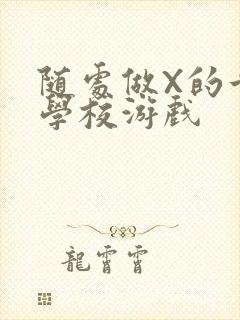 随處做X的
學校游戲
龍霄霄